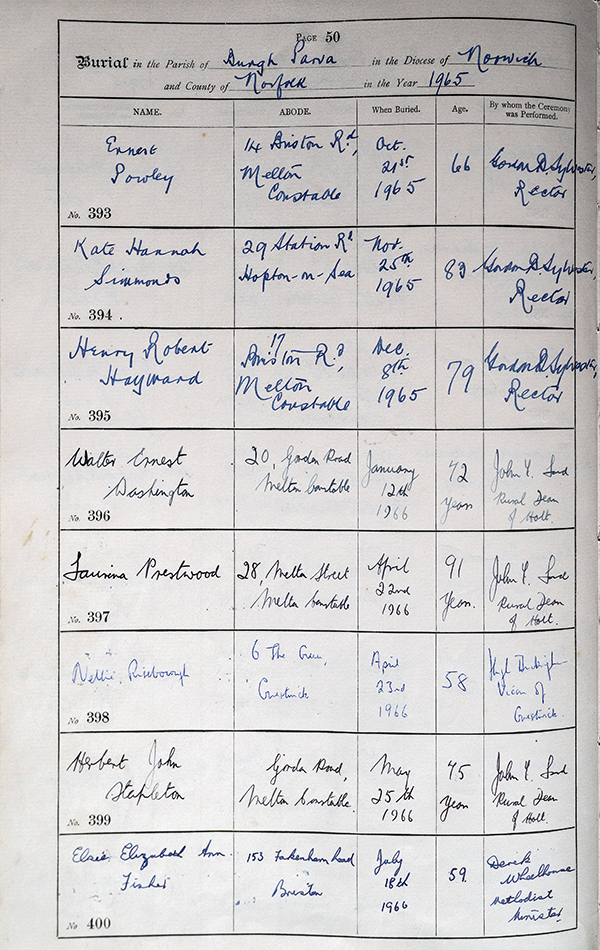 PAGE 50
Burial in the Parish of Burgh Parva in the Diocese of Norwich
and County of Norfolk in the Year 1965
NAME. ABODE. When Buried. Age. By whom the Ceremony was Performed.
Ernest
Powley
No. 393
14 Briston Rd,
Melton
Constable
Oct.
21st
1965
66
Gordon D. Sylvester,
Rector
Kate Hannah
Simmonds
No. 394.
29 Station Rd
Hopton-on-Sea
Nov.
25th
1965
83
Gordon D. Sylvester,
Rector
Henry Robert
Hayward
No. 395
17
Briston Rd,
Melton
Constable
Dec.
8th
1965
79
Gordon D. Sylvester,
Rector
Walter Ernest
Washington
No. 396
20, Gordon Road
Melton Constable
January
12th
1966
72
years
John Y.
Rural Dean
of Holt.
Laurina Prestwood
No. 397
28, Melton Street
Melton Constable
April
22nd
1966
91
Years.
John Y.
Rural Dean
of Holt.
Nellie
No 398
6 The Green,
Guestwick
April
23rd
1966
58
Hugh
Vicar of
Guestwick.
Herbert John
Stapleton
No. 399
Gordon Road,
Melton Constable.
May
25th
1966
75
Years
John Y.
Rural Dean
of Holt.
Elsie Elizabeth Ann
Fisher
No 400
153 Fakenham Road
Briston
July
18th
1966
59.
Derek
Wheelhouse
Methodist
Minister